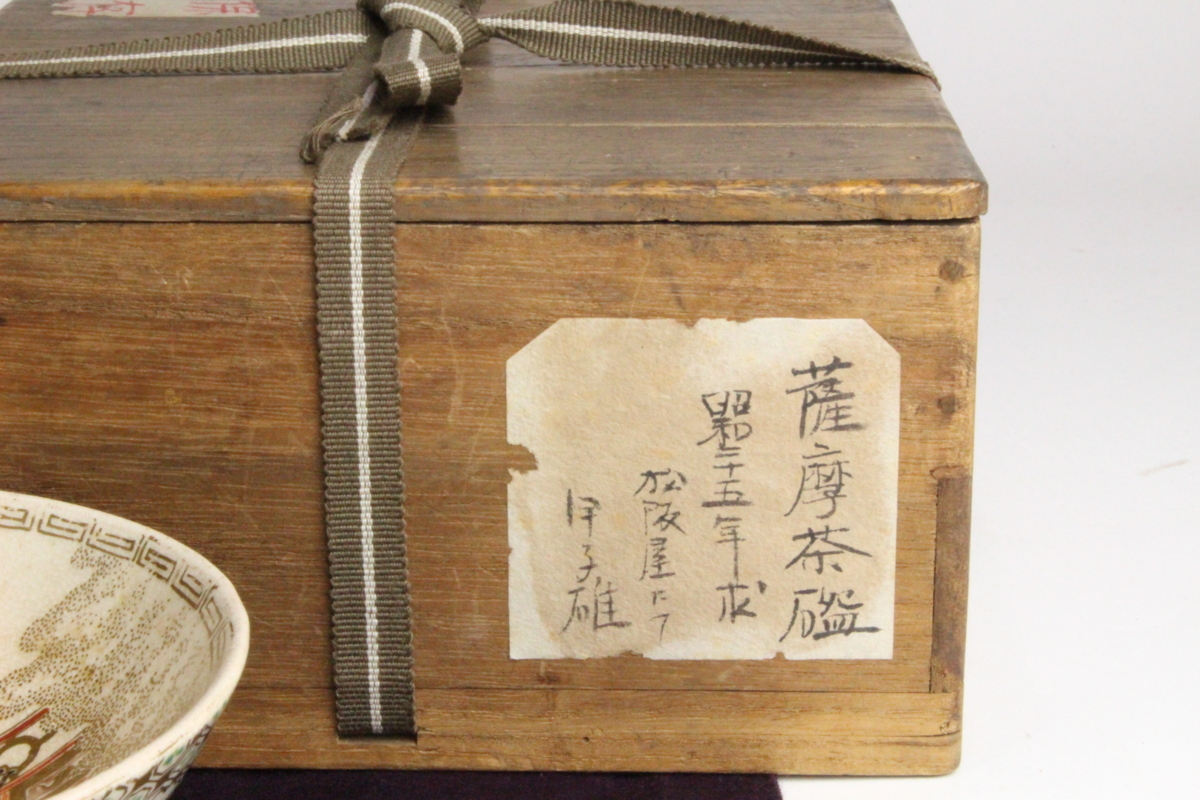 薩摩茶碗
昭和二十五年求
松阪屋にて
甲子雄